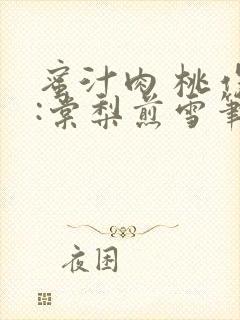 蜜汁肉桃作
:棠梨煎雪筆
夜困